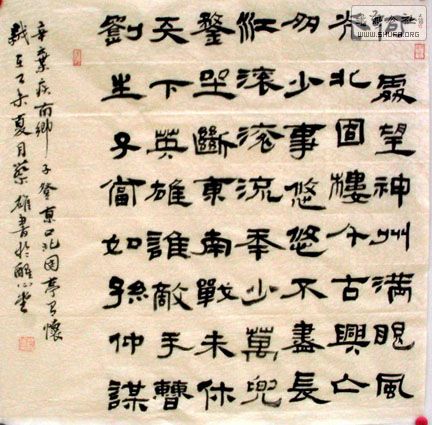 處望神州滿眼風
光北固樓千古興亡
多少事悠悠不盡長
江滾滾流年少萬兜
鍪坐斷東南戰未休
天下英雄誰敵手曹
劉生子當如孫仲謀
辛棄疾南鄉子登京口北固亭有懷
歲在未夏月蔡雄書於心堂
WWW.SHUFA.ORG